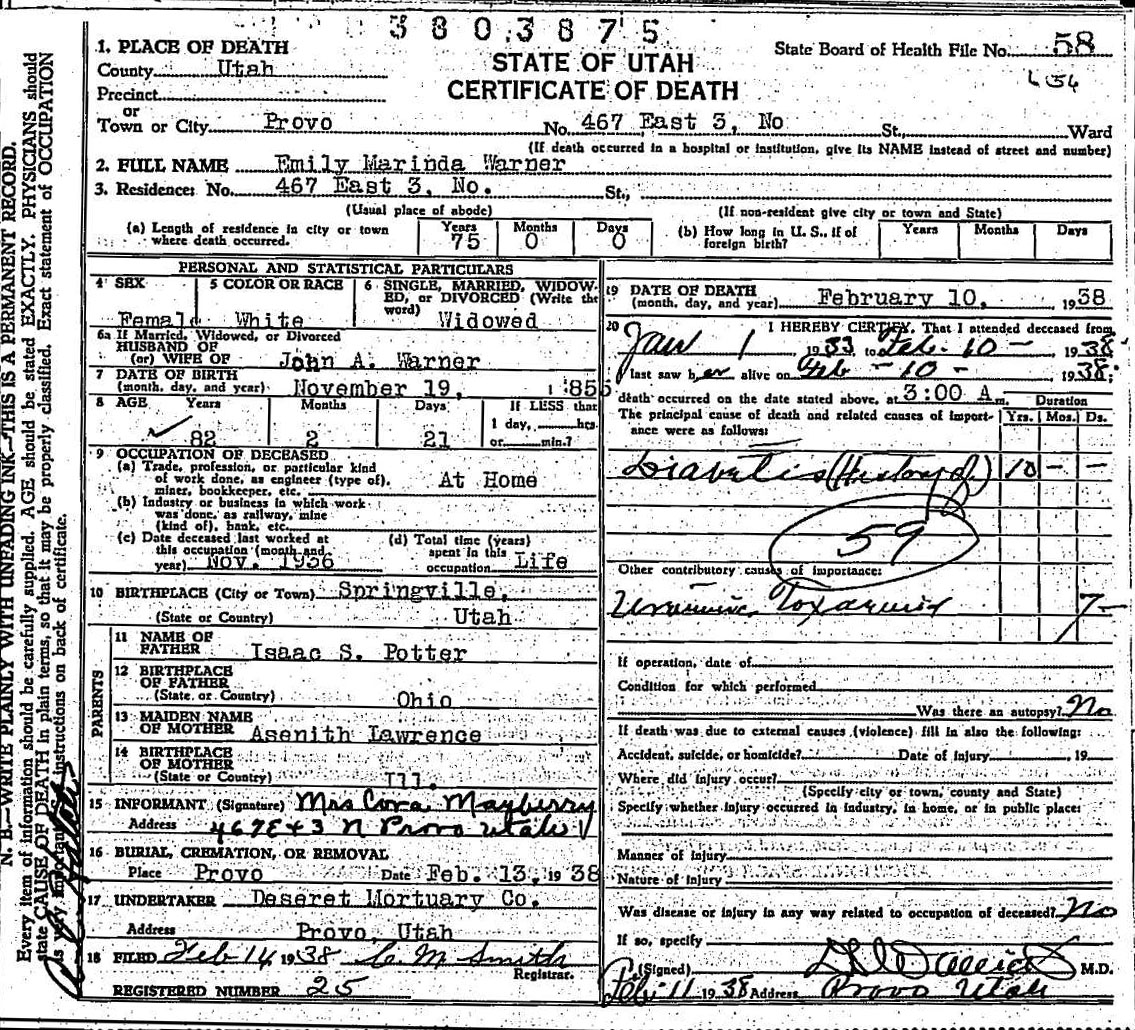 3803875
1. PLACE OF DEATH
County Utah
Precinct
or
Town or City Provo
STATE OF UTAH
CERTIFICATE OF DEATH
State Board of Health File No. 58
No. 467 East 3, No St., Ward
(If death occurred in a hospital or institution, give its NAME instead of street and number)
2. FULL NAME Emily Marinda Warner
3. Residence: No. 467 East 3, No. St.,
(Usual place of abode) (If non-resident give city or town and State)
(a) Length of residence in city or town where death occurred. Years 75 Months 0 Days 0
(b) How long in U. S., if of foreign birth? Years Months Days
PERSONAL AND STATISTICAL PARTICULARS
4 SEX Female
5 COLOR OR RACE White
6 SINGLE, MARRIED, WIDOWED, or DIVORCED (Write the word) Widowed
6a If Married, Widowed, or Divorced
HUSBAND OF
(or) WIFE OF John A. Warner
7 DATE OF BIRTH
(month, day, and year) November 19, 1855
8 AGE Years 82 Months 2 Days 21 If LESS than 1 day, hrs. or min.?
9 OCCUPATION OF DECEASED
(a) Trade, profession, or particular kind
of work done, as engineer (type of),
miner, bookkeeper, etc. At Home
(b) Industry or business in which work
was done, as railway, mine
(kind of), bank, etc.
(c) Date deceased last worked at
this occupation (month and
year) Nov. 1936
(d) Total time (years)
spent in this
occupation Life
10 BIRTHPLACE (City or Town) Springville,
(State or Country) Utah
PARENTS
11 NAME OF
FATHER Isaac S. Potter
12 BIRTHPLACE
OF FATHER
(State or Country) Ohio
13 MAIDEN NAME
OF MOTHER Asenith Lawrence
14 BIRTHPLACE
OF MOTHER
(State or Country) Ill.
15 INFORMANT (Signature) Mrs Cora Mayberry
Address 467 E + 3 N Provo Utah
16 BURIAL, CREMATION, OR REMOVAL
Place Provo Date Feb. 13, 1938
17 UNDERTAKER Deseret Mortuary Co.
Address Provo, Utah
18 FILED Feb 14 1938 C. M Smith
Registrar.
REGISTERED NUMBER 25
19 DATE OF DEATH
(month, day, and year) February 10, 1938
20 I HEREBY CERTIFY, That I attended deceased from
Jan 1, 1933 to Feb. 10 - 1938
I last saw her alive on Feb - 10 - 1938;
death occurred on the date stated above, at 3:00 A.m. Duration
The principal cause of death and related causes of importance were as follows: Yrs. Mos. Ds.
Diabetis (History of) 10 - -
59
Other contributory causes of importance:
Uraemic Toxaemia 7-
If operation, date of
Condition for which performed
Was there an autopsy? No
If death was due to external causes (violence) fill in also the following:
Accident, suicide, or homicide? Date of injury 19
Where did injury occur?
(Specify city or town, county and State)
Specify whether injury occurred in industry, in home, or in public place:
Manner of Injury
Nature of Injury
Was disease or injury in any way related to occupation of deceased? No
If so, specify
(Signed) M.D.
Feb. 11 1938 Address Provo Utah
N. B.—WRITE PLAINLY WITH UNFADING INK—THIS IS A PERMANENT RECORD.
Every item of information should be carefully supplied. AGE should be stated EXACTLY. PHYSICIANS should
state CAUSE OF DEATH in plain terms, so that it may be properly classified. Exact statement of OCCUPATION
is very important. See instructions on back of certificate.